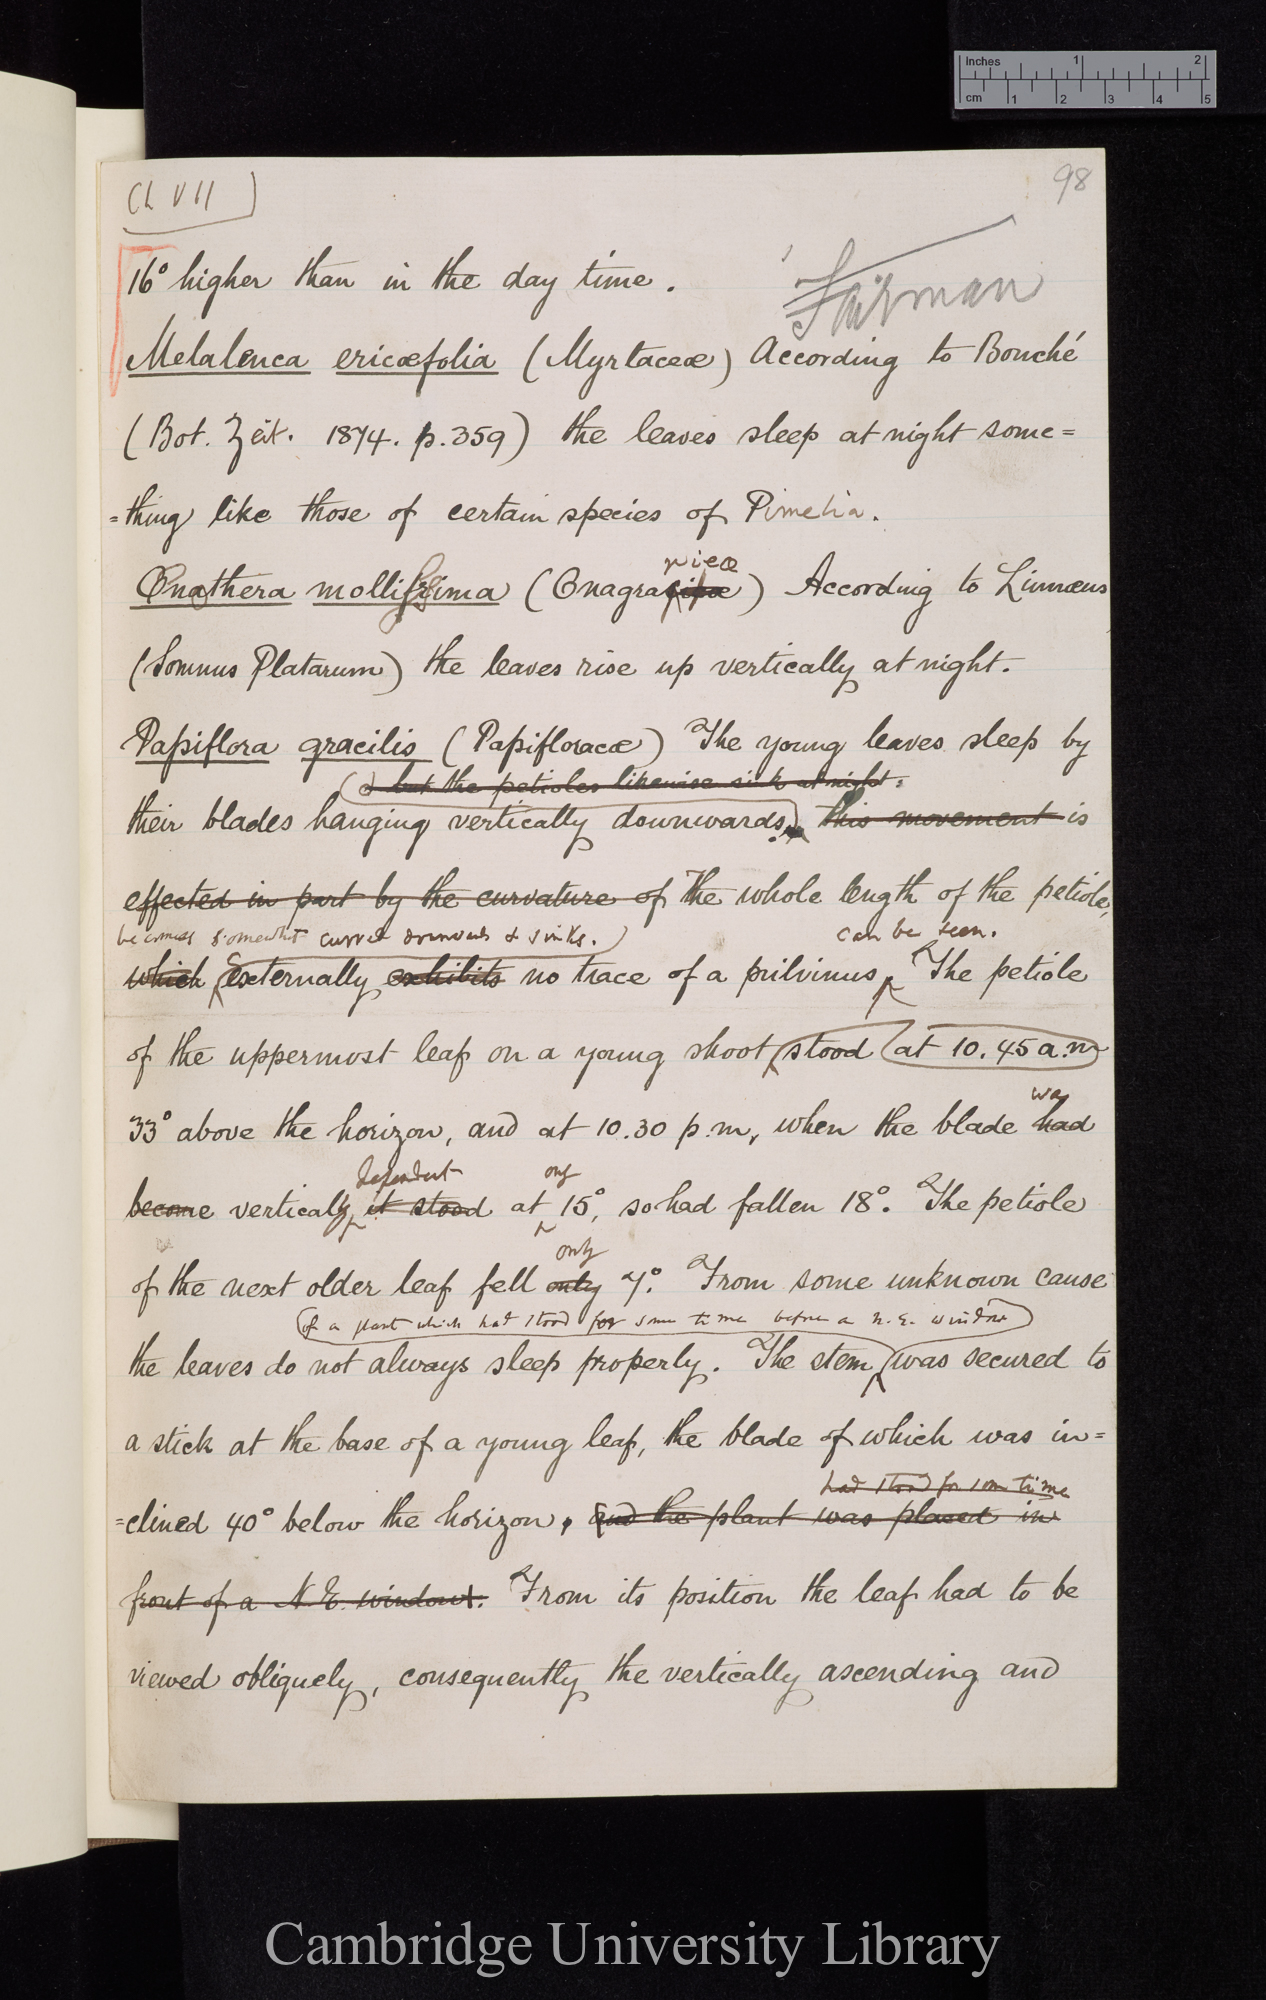 Inches 1 2
cm 1 2 3 4 5
98
Ch VII
16° higher than in the day time.
Fairman
Melalenca ericæfolia (Myrtaceæ) According to Bouché
(Bot. Zeit. 1874. p. 359) the leaves sleep at night some=
=thing like those of certain species of Pimelia.
rieæ
Œnathera mollissima (Onagra) According to Linnæus
(Somnus Platarum) the leaves rise up vertically at night.
Pasiflora gracilis (Pasifloracæ) The young leaves sleep by
but the petioles likewise sink at night.
their blades hanging vertically downwards, this movement is
effected in part by the curvature of The whole length of the petiole,
becomes somewhat curved downwards & sinks. can be seen.
which externally exhibits no trace of a pulvinus, The petiole
of the uppermost leaf on a young shoot stood at 10.45 a.m
33° above the horizon, and at 10.30 p.m, when the blade had
was
dependent only
become vertically it stood at 15°, so had fallen 18°. The petiole
only
of the next older leaf fell only 7°. From some unknown cause
of a plant which had stood for some time before a N.E. window
the leaves do not always sleep properly. The stem was secured to
a stick at the base of a young leaf, the blade of which was in=
had stood for some time
=clined 40° below the horizon, and the plant was placed in
front of a N.E. window. From its position the leaf had to be
viewed obliquely, consequently the vertically ascending and
Cambridge University Library